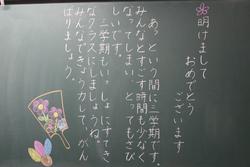 明けまして
おめでとう
ございます
あっという間に三学期です。
みんなとすごす時間も少なく
なってしまい、とってもさび
しいです。
三学期もいっしょにすてき
なクラスにしましょうね。
みんなできょう力して、がん
ばりましょう。